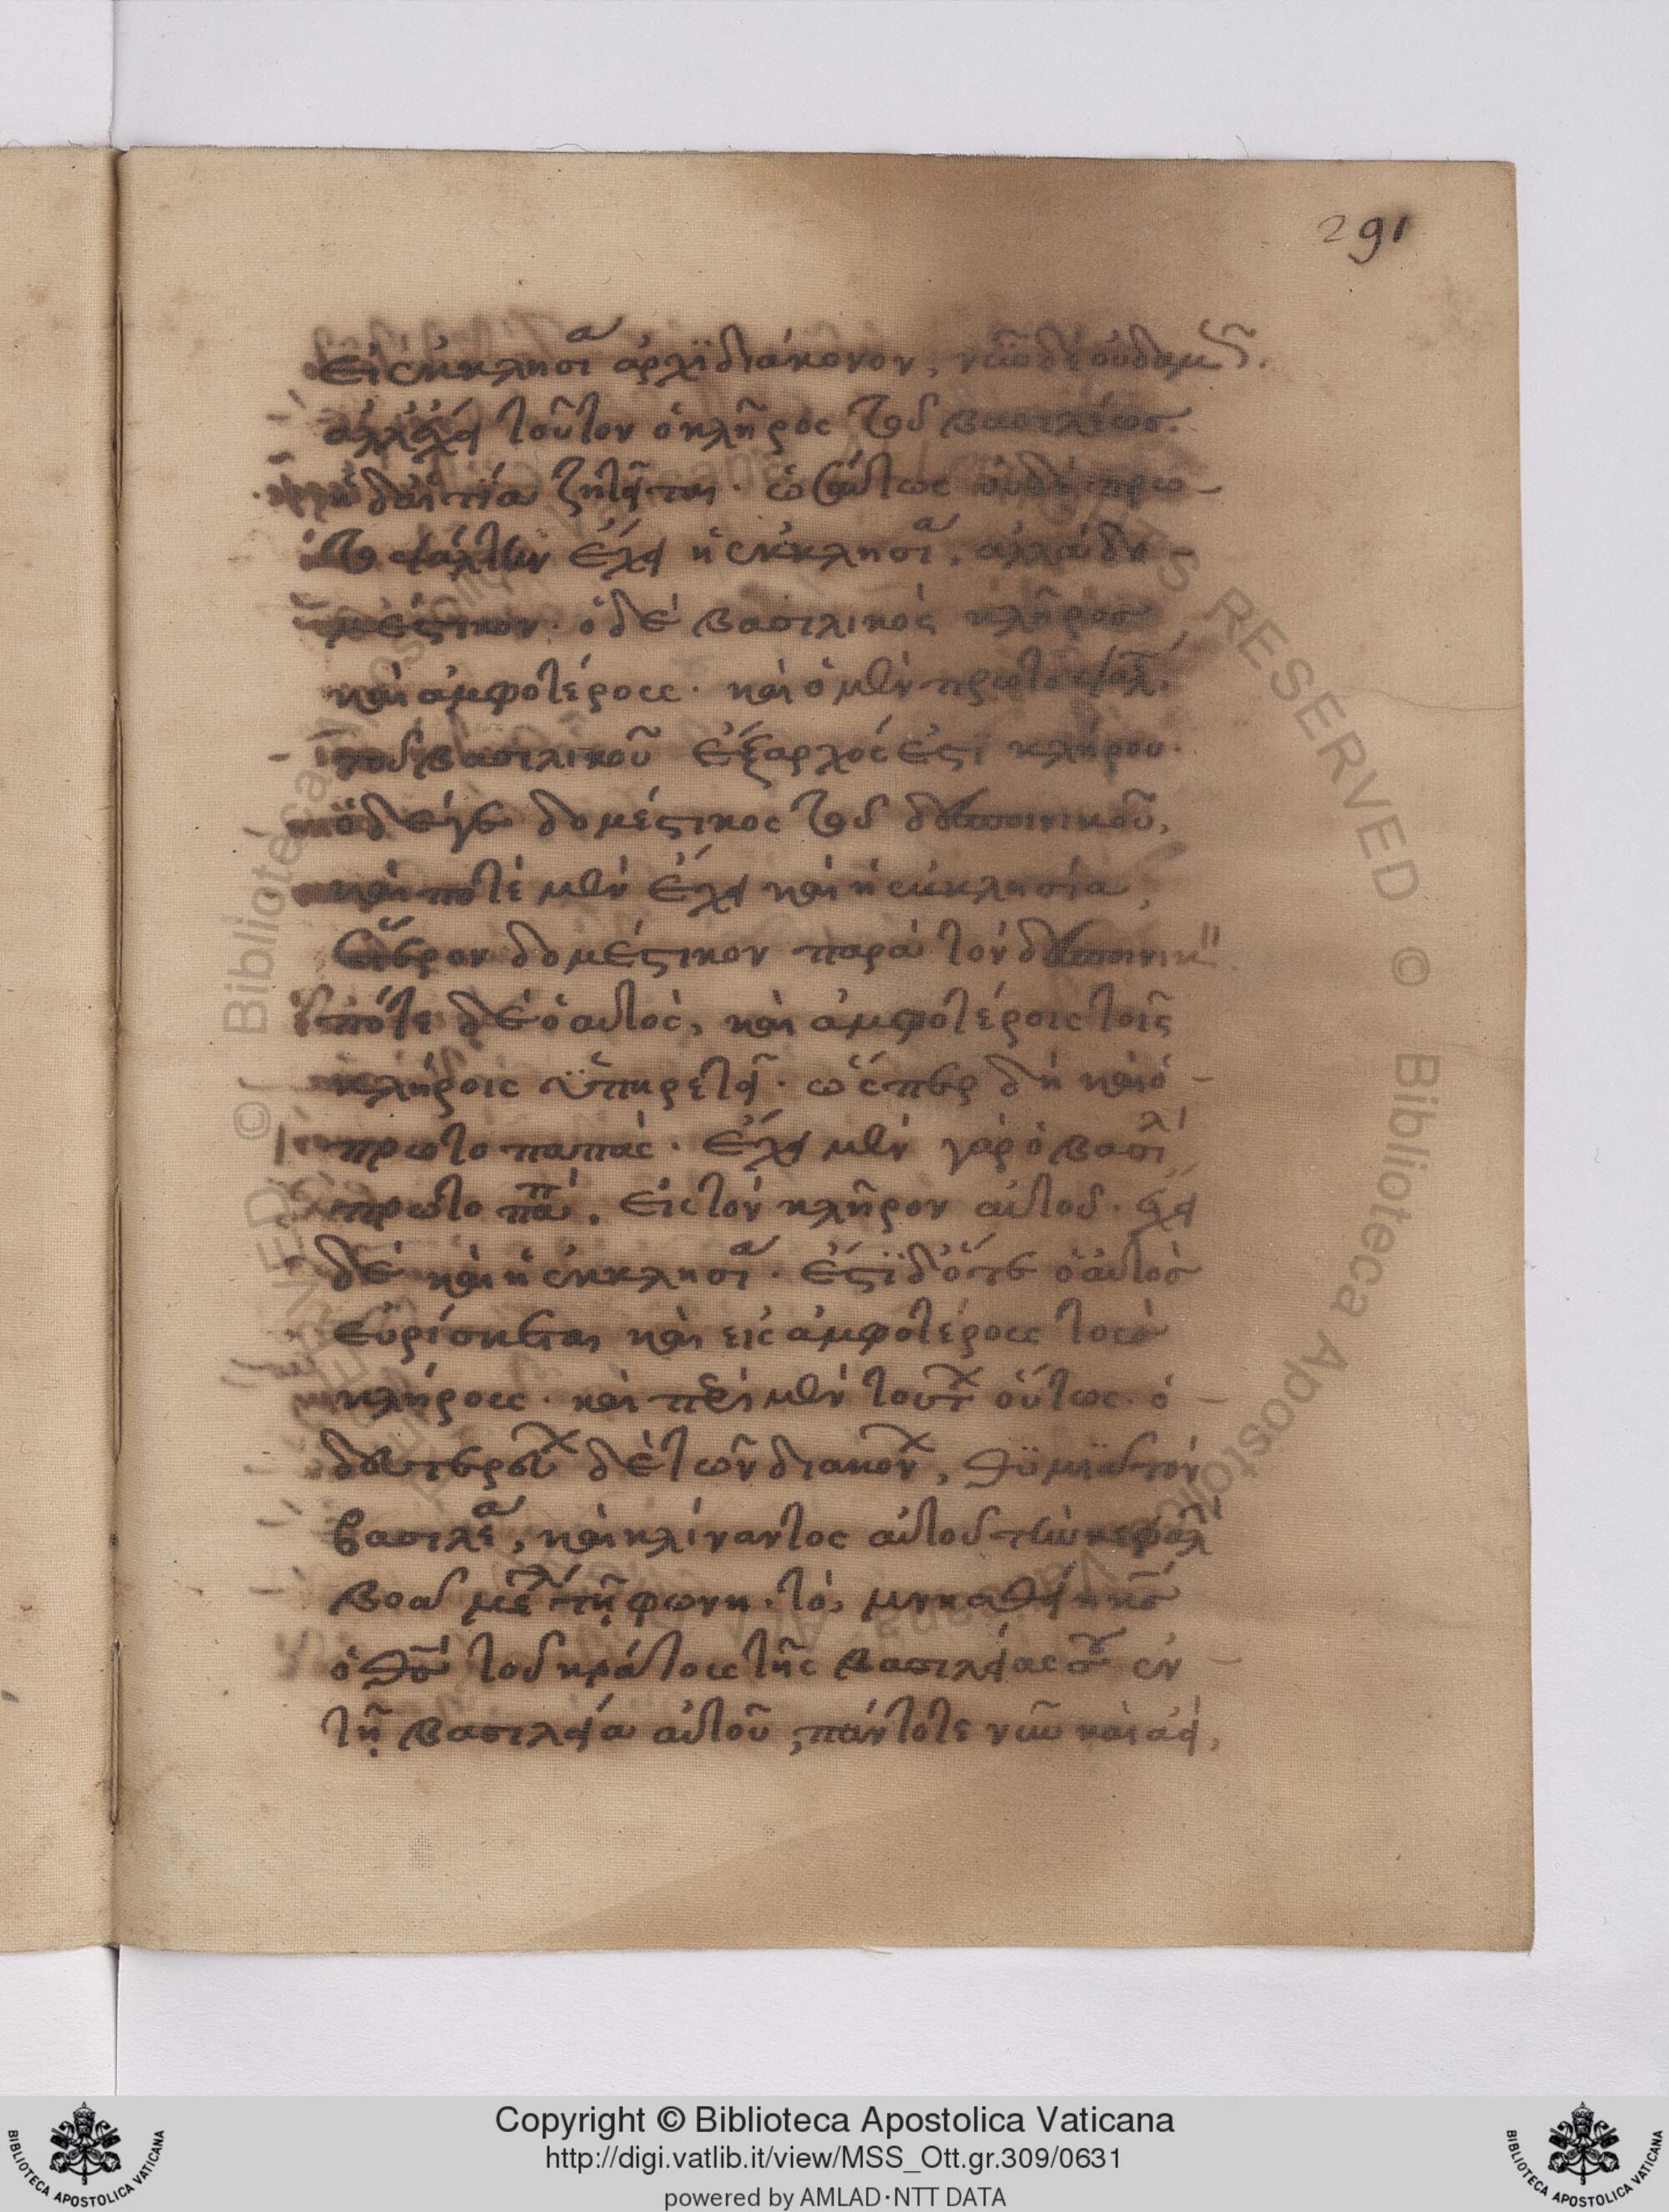 291
ἐκκλησία ἀρχϊδιάκονον, νῦν δὲ οὐδαμῶς.
ἀλλ' ἔχει τοῦτον ὁ κλῆρος τοῦ βασιλέως.
ἡ δ' αἰτία ζητεῖται. ὡσαύτως οὐδὲ πρω-
τοψάλτην ἔχει ἡ ἐκκλησία, ἀλλὰ δο-
μέστικον. ὁ δὲ βασιλικὸς κλῆρος
καὶ ἀμφοτέρους. καὶ ὁ μὲν πρωτοψάλ
τοῦ βασιλικοῦ ἔξαρχός ἐστι κλήρου.
ὁ δέ γε δομέστικος τοῦ δεσποινικοῦ,
καὶ ποτὲ μὲν ἔχει καὶ ἡ ἐκκλησία,
ἕτερον δομέστικον παρὰ τὸν δεσποινικ
πότε δὲ ὁ αὐτὸς, καὶ ἀμφοτέροις τοῖς
κλήροις ὑπηρετεῖ. ὥσπερ δὴ καὶ ὁ
πρωτοπαπὰς. ἔχει μὲν γὰρ ὁ βασιλ
πρωτοπαπ. εἰς τὸν κλῆρον αὐτοῦ. ἔχει
δὲ καὶ ἡ ἐκκλησία. ἔστι δ' ὅτε ὁ αὐτὸς
εὑρίσκεται καὶ εἰς ἀμφοτέρους τοὺς
κλήρους. καὶ περὶ μὲν τούτων οὕτως. ὁ
δευτερεύων δὲ τῶν διακόνων, θυμιᾷ τὸν
βασιλέα, καὶ κλίναντος αὐτοῦ τὴν κεφαλ
βοᾷ μεγάλη τῇ φωνῇ. τό, μνησθείη κς
ὁ θς τοῦ κράτους τῆς βασιλείας σου ἐν
τῇ βασιλείᾳ αὐτοῦ, πάντοτε νῦν καὶ ἀεί,
Copyright © Biblioteca Apostolica Vaticana
http://digi.vatlib.it/view/MSS_Ott.gr.309/0631
powered by AMLAD·NTT DATA
BIBLIOTECA APOSTOLICA VATICANA
BIBLIOTECA APOSTOLICA VATICANA